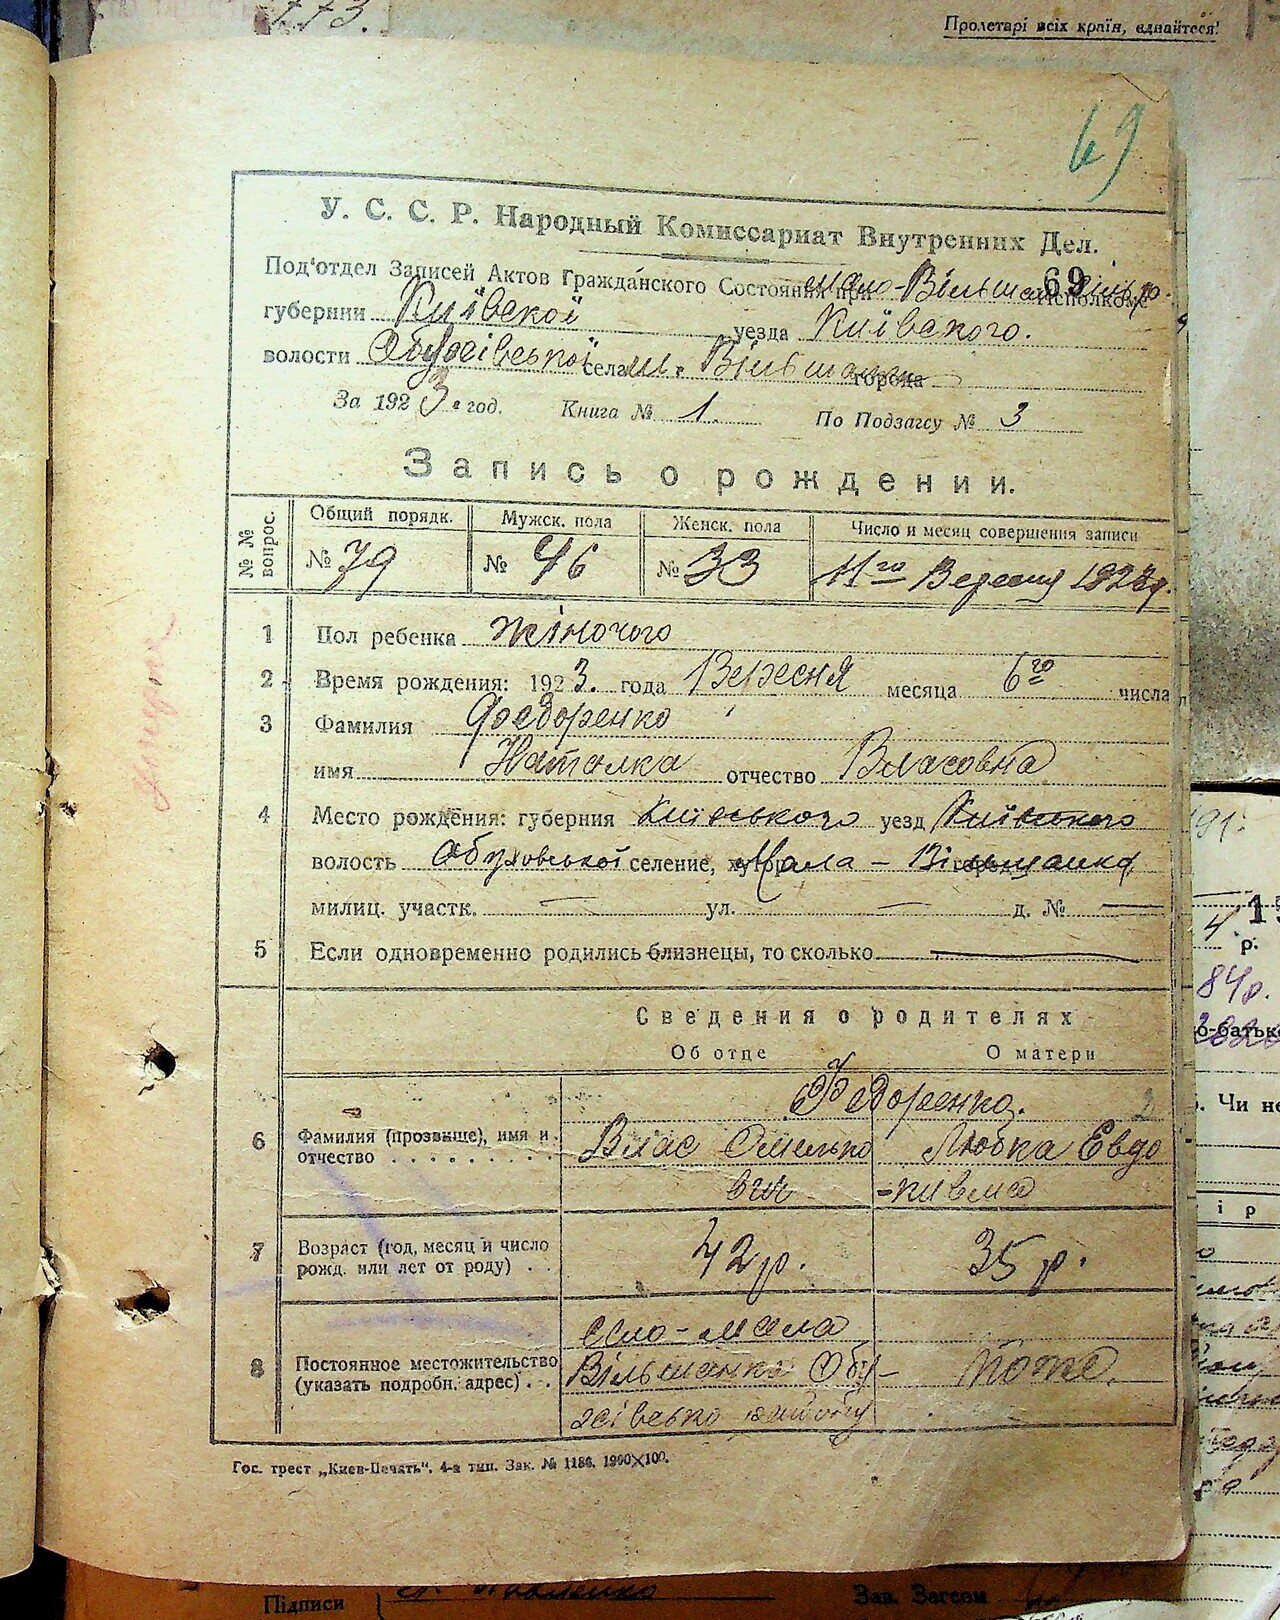 773.
Пролетарі всіх країн, єднайтеся!
69
У. С. С. Р. Народный Комиссариат Внутренних Дел.
69
Под'отдел Записей Актов Гражданского Состояния при Мало-Вільшан исполком
губернии Київської уезда Київского.
волости Обухівської села М. Вільшанка города
За 1923 год. Книга № 1 По Подзагсу № 3
Запись о рождении.
№ № вопрос.
Общий порядк. Мужск. пола Женск. пола Число и месяц совершения записи
№ 79 № 46 № 33 11го Вересня 1923 р.
1 Пол ребенка жіночого
2 Время рождения: 1923. года Вересня месяца 6го числа
3 Фамилия Федоренко
имя Наталка отчество Власовна
4 Место рождения: губерния Київського уезд Київского
волость Обуховської селение, хутор Мала-Вільшанка город
милиц. участк. — ул. — д. № —
5 Если одновременно родились близнецы, то сколько —
Сведения о родителях
Об отце О матери
Федоренко.
6 Фамилия (прозвище), имя и отчество . . . . . . . . . Влас Омелько Любка Евдо
вич -кивма
7 Возраст (год, месяц и число рожд. или лет от роду) . . 42 р. 35 р.
село-мала
8 Постоянное местожительство (указать подробн. адрес) . . Вільшанка Обу- тоже.
хівсько району
Гос. трест „Киев-Печать“. 4-я тип. Зак. № 1186. 1900×100.
191
19
4 р.
84р.
о-батьк
. Чи не
і р
Підписи
Зав. Загсом